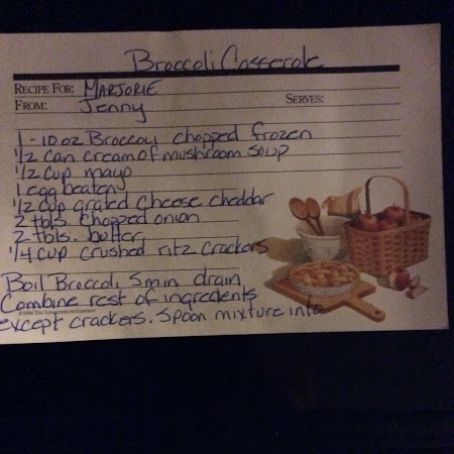 Broccoli Casserole
RECIPE FOR: MARJORIE
FROM: Jenny SERVES:
1-10 oz Broccoli chopped frozen
1/2 can cream of mushroom soup
1/2 cup mayo
1 egg beaten
1/2 cup grated cheese cheddar
2 tbls. chopped onion
2 tbls. butter
1/4 cup crushed ritz crackers
Boil Broccoli 5 min drain
Combine rest of ingredents
except crackers. Spoon mixture into